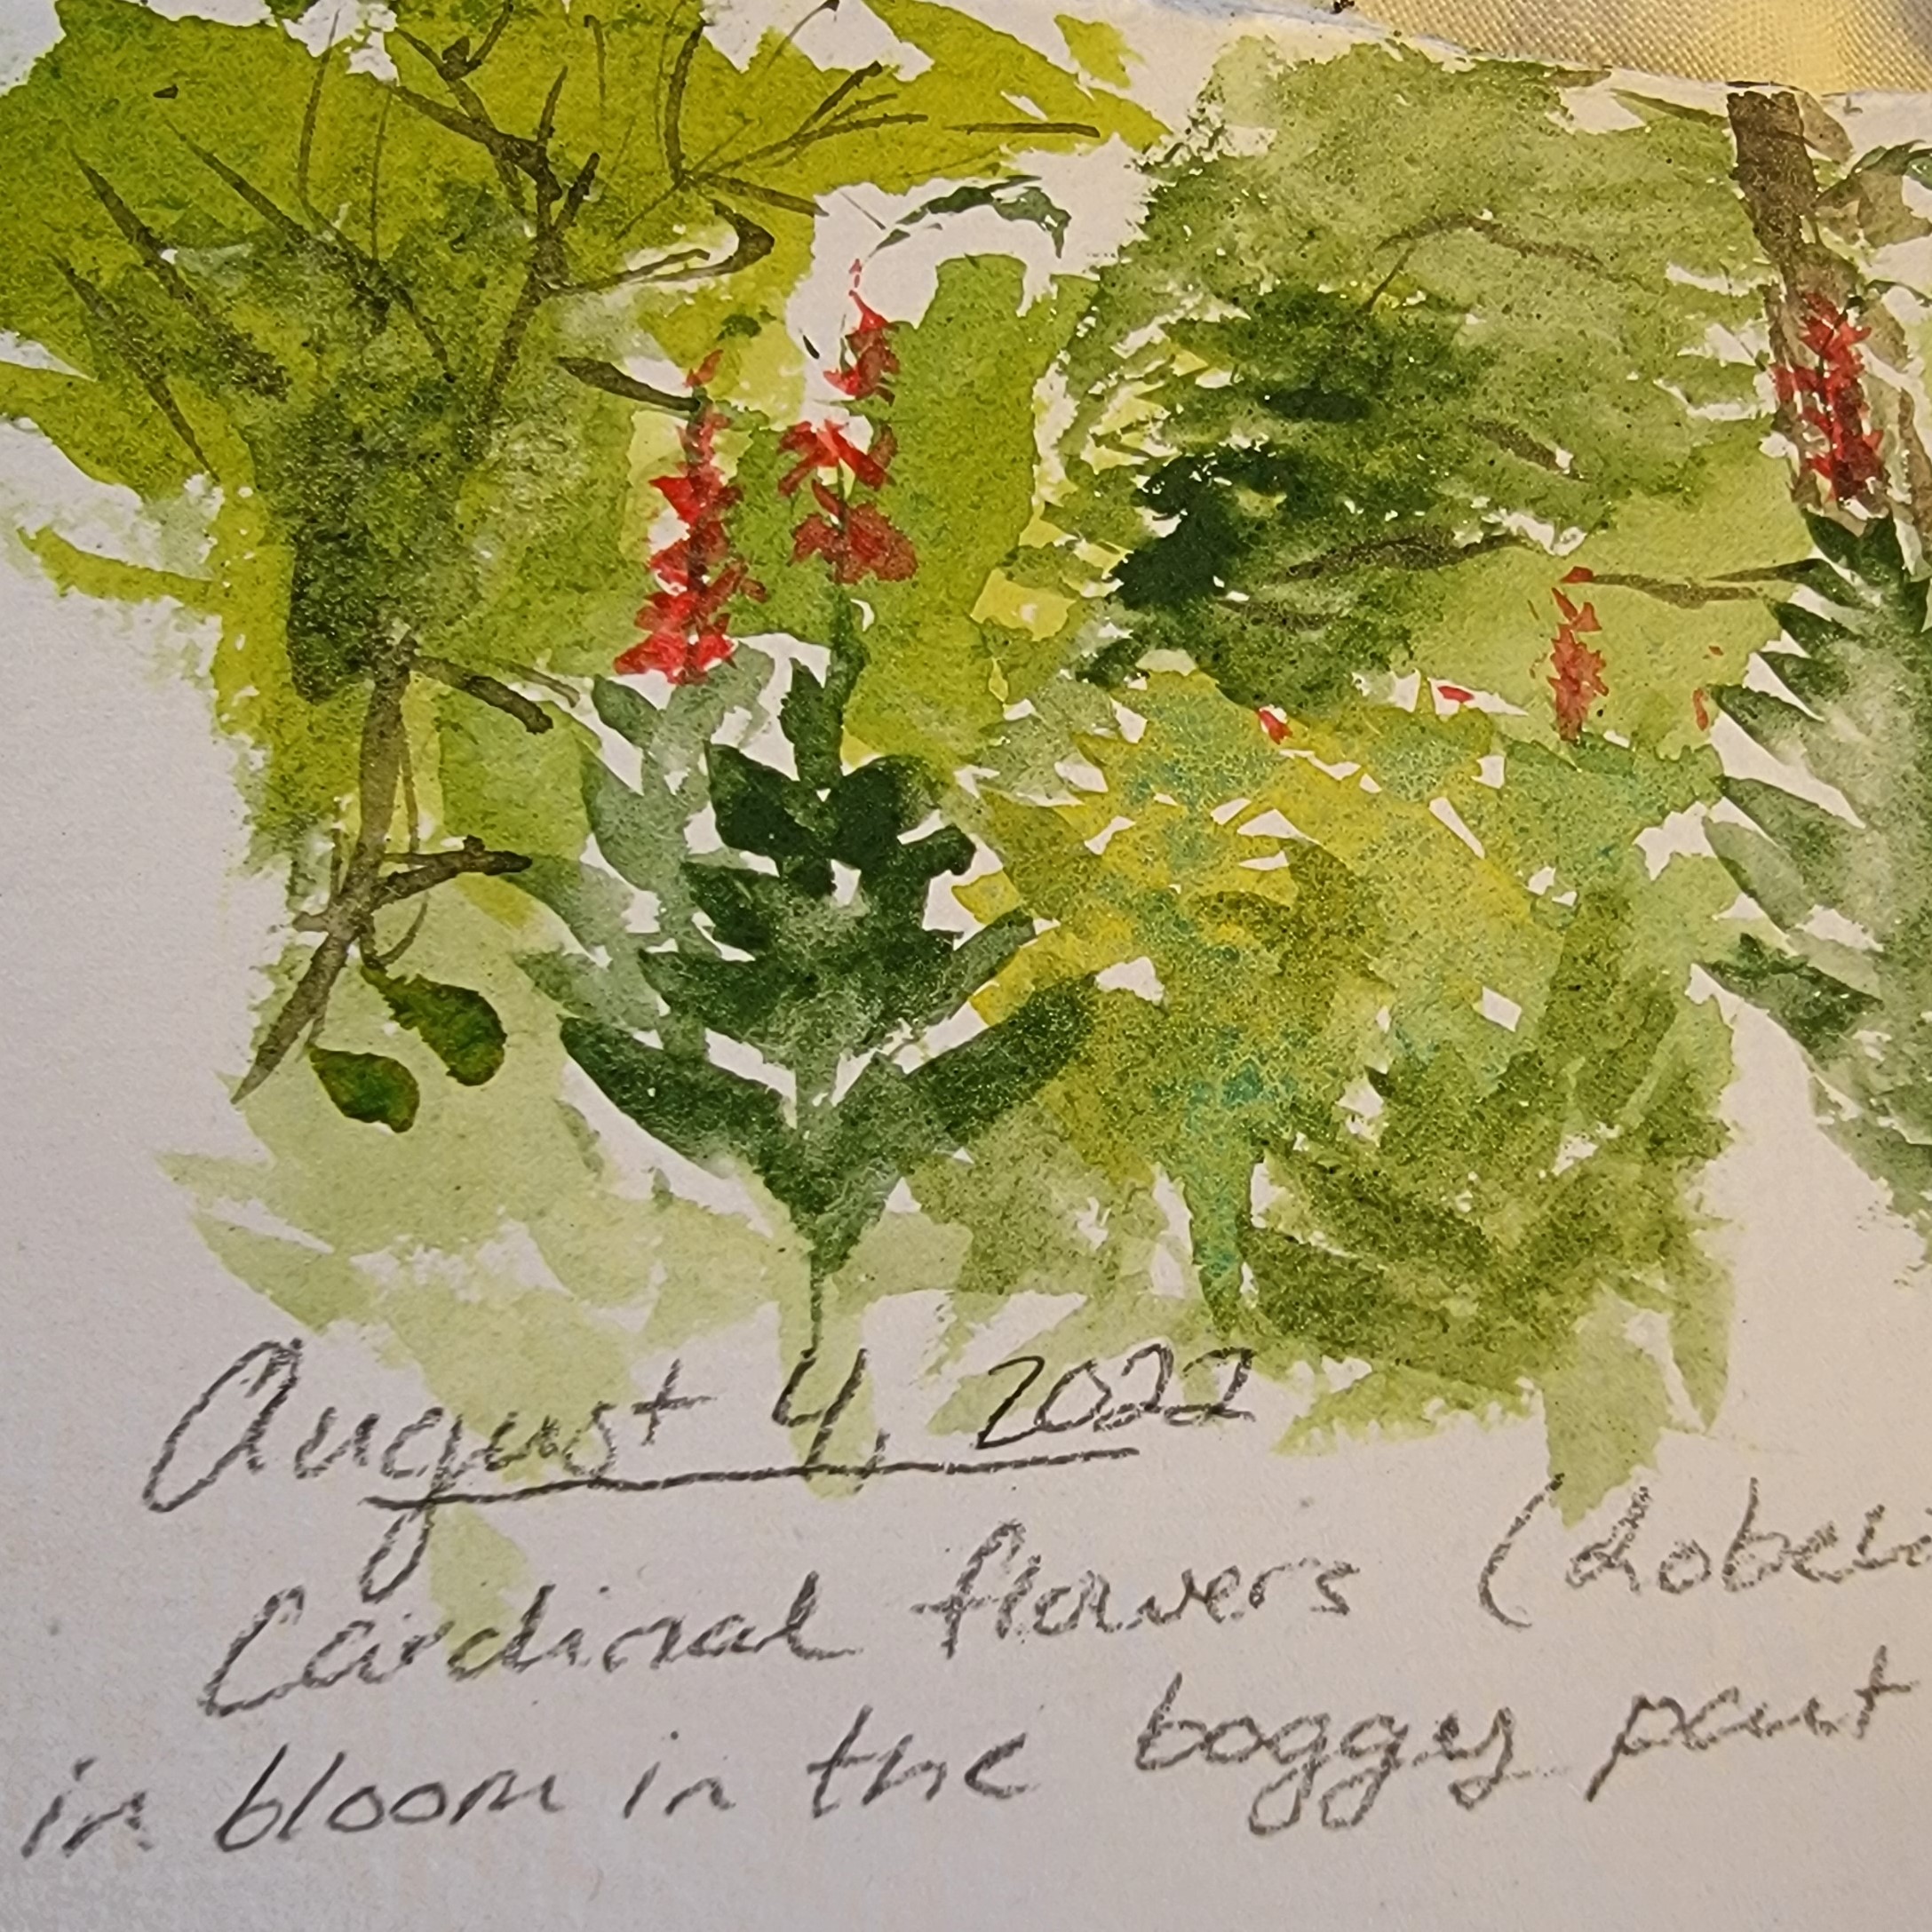 August 4, 2022
Cardinal flowers (Lobel
in bloom in the boggy part